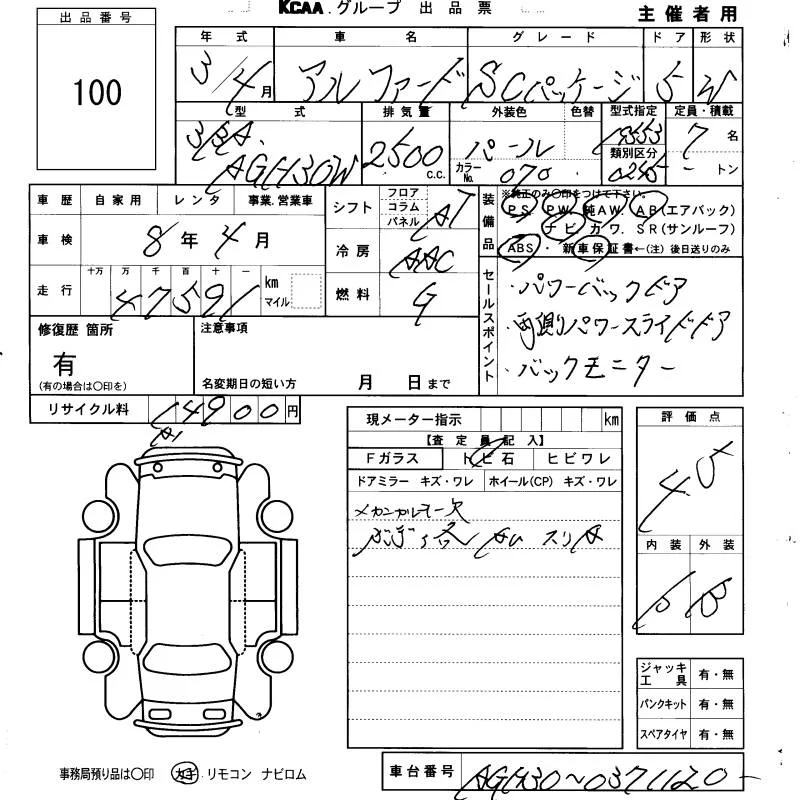 KCAA.グループ 出品票
主催者用
出品番号
100
年式 車名 グレード ドア 形状
3/4月 アルファード SCパッケージ 5 W
型式 排気量 外装色 色替 型式指定 定員・積載
3BA. AGH30W 2500 c.c. パール 19353 7名
類別区分
カラーNo. 070 0245 - トン
車歴 自家用 レンタ 事業.営業車
シフト フロア コラム パネル AT
装備品
※純正のみ〇印をつけて下さい。
PS. PW. 純AW. AB(エアバック)
ナビ カワ. SR(サンルーフ)
ABS ・ 新車保証書←(注) 後日送りのみ
車検 8年 4月
冷房 AAC
走行 十万 万 千 百 十 一
47591 km マイル
燃料 G
セールスポイント
・パワーバックドア
・両側パワースライドドア
・バックモニター
修復歴 箇所
有
(有の場合は〇印を)
注意事項
名変期日の短い方 月 日まで
リサイクル料 14900円
A1
現メーター指示 km
【査定員記入】
Fガラス トビ石 ヒビワレ
ドアミラー キズ・ワレ ホイール(CP) キズ・ワレ
スリA
評価点
4.5
内装 外装
B B
ジャッキ工具 有・無
パンクキット 有・無
スペアタイヤ 有・無
事務局預り品は〇印 カギ.リモコン ナビロム
車台番号 AGH30~0371120-